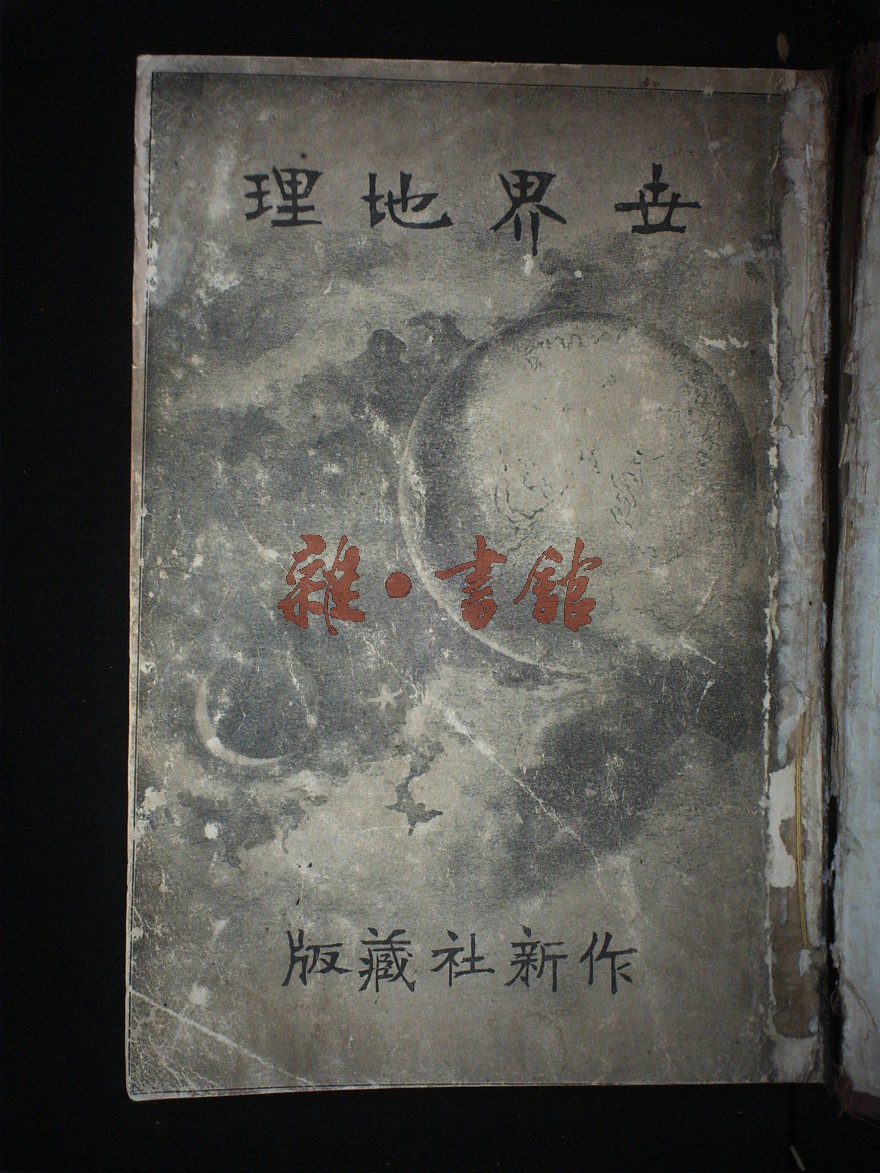 世界地理
雜·書館
作新社藏版